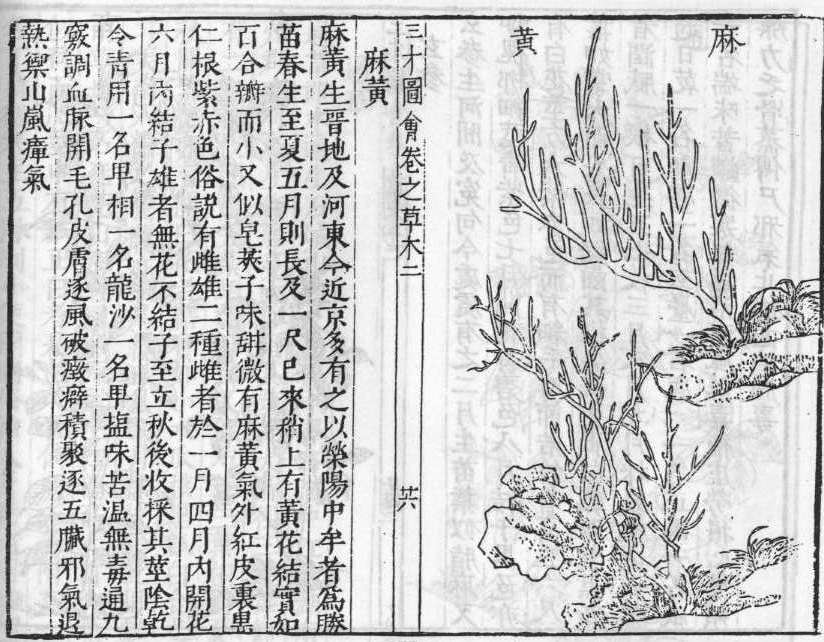 麻黃
三才圖會卷之草木二 共
麻黃
麻黃生晉地及河東今近京多有之以滎陽中牟者爲勝
苗春生至夏五月則長及一尺已來稍上有黃花結實如
百合瓣而小又似皂莢子味甜微有麻黃氣外紅皮裏黑
仁根紫赤色俗說有雌雄二種雌者於三月四月內開花
六月內結子雄者無花不結子至立秋後收採其莖陰乾
令青用一名卑相一名龍沙一名卑塩味苦温無毒通九
竅調血脈開毛孔皮膚逐風破癥癖積聚逐五臟邪氣退
熱禦山嵐瘴氣